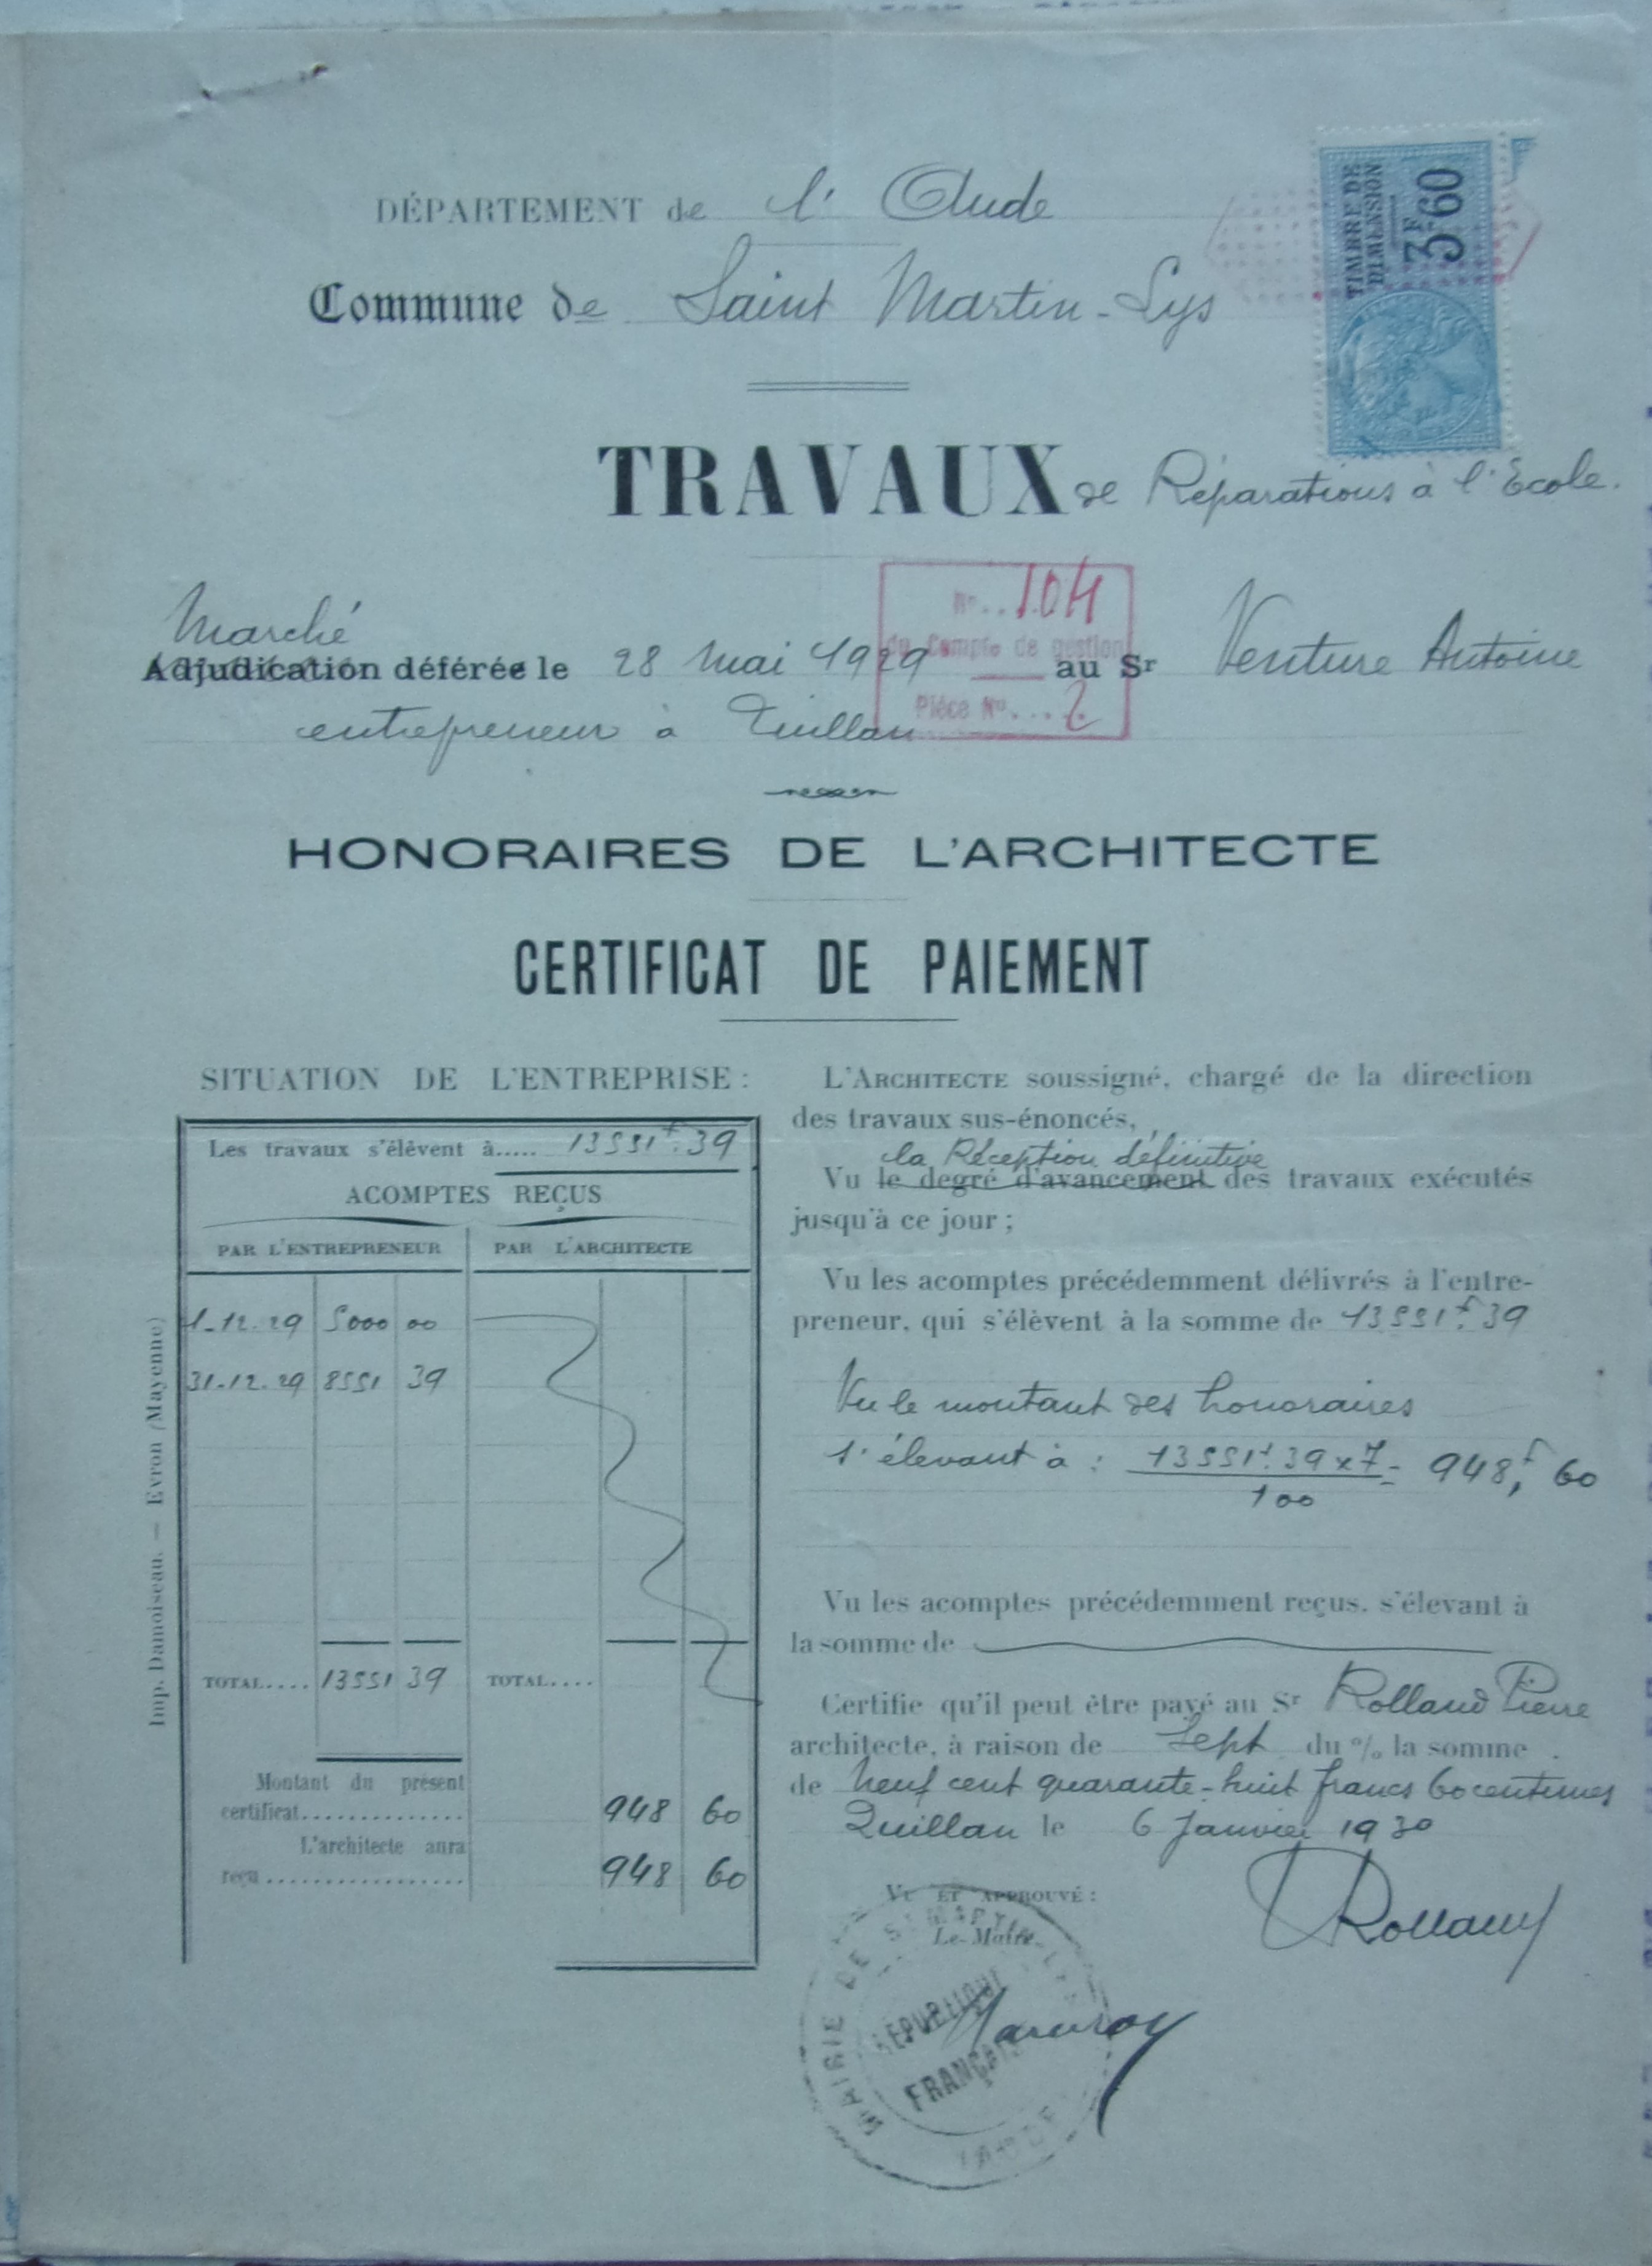 DÉPARTEMENT de l'Aude
Commune de Saint Martin-Lys
TIMBRE DE
DIMENSION
3F60
TRAVAUX de Réparations à l'Ecole.
Marché
Adjudication déférée le 28 Mai 1929 au Sr Venture Antoine
entrepreneur à Quillan
No.. 104
du Compte de gestion
Pièce No.... 2
HONORAIRES DE L'ARCHITECTE
CERTIFICAT DE PAIEMENT
SITUATION DE L'ENTREPRISE :
Les travaux s'élèvent à..... 13551f.39
ACOMPTES REÇUS
PAR L'ENTREPRENEUR PAR L'ARCHITECTE
1-12.29 5000 00
31-12.29 8551 39
TOTAL.... 13551 39 TOTAL....
Montant du présent
certificat.............. 948 60
L'architecte aura
reçu................. 948 60
Imp. Damoiseau. — Evron (Mayenne)
L'ARCHITECTE soussigné, chargé de la direction
des travaux sus-énoncés,
la Réception définitive
Vu le degré d'avancement des travaux exécutés
jusqu'à ce jour ;
Vu les acomptes précédemment délivrés à l'entre-
preneur, qui s'élèvent à la somme de 13551f.39
Vu le montant des honoraires
s'élevant à : 13551f.39 x 7 = 948f,60
100
Vu les acomptes précédemment reçus, s'élevant à
la somme de
Certifie qu'il peut être payé au Sr Rolland Pierre
architecte, à raison de Sept du % la somme
de Neuf cent quarante-huit francs 60 centimes
Quillan le 6 Janvier 1930
VU ET APPROUVÉ :
Le Maire,
Rolland
MAIRIE DE ST MARTIN-LYS
RÉPUBLIQUE
FRANÇAISE
(AUDE)